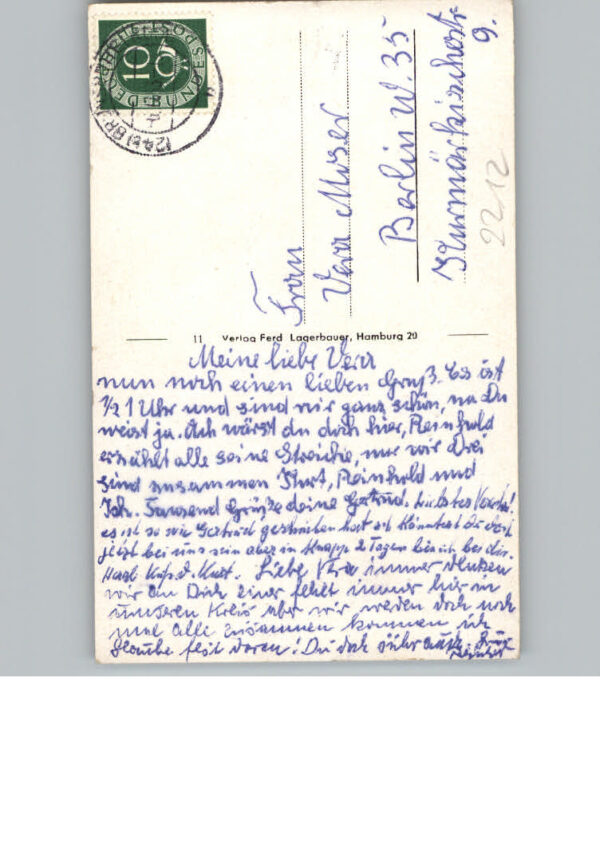 DEUTSCHE BUNDESPOST
10
(24a)
Frau
Vera Moser
Berlin W. 35
Kurmärkischestr
9.
22 12
11 Verlag Ferd Lagerbauer, Hamburg 20
Meine liebe Vera
nun noch einen lieben Gruß. Es ist
1/2 1 Uhr und sind wir ganz schön, na Du
weist ja. Ach wärst du doch hier, Reinhold
erzählt alle seine Streiche, nur wir Drei
sind zusammen Kurt, Reinhold und
Ich. Tausend Grüße deine Gertrud. Liebstes
es ist so wie Gertrud geschrieben hat ach könntest du doch
jetzt bei uns sein aber in knapp 2 Tagen bin ich bei dir.
Kurt. Liebe Vera immer denken
wir an Dich einer fehlt immer hier in
unseren Kreis aber wir werden doch noch
mal alle zusammen kommen ich
glaube fest daran! Du doch auch. Gruß
Reinhold